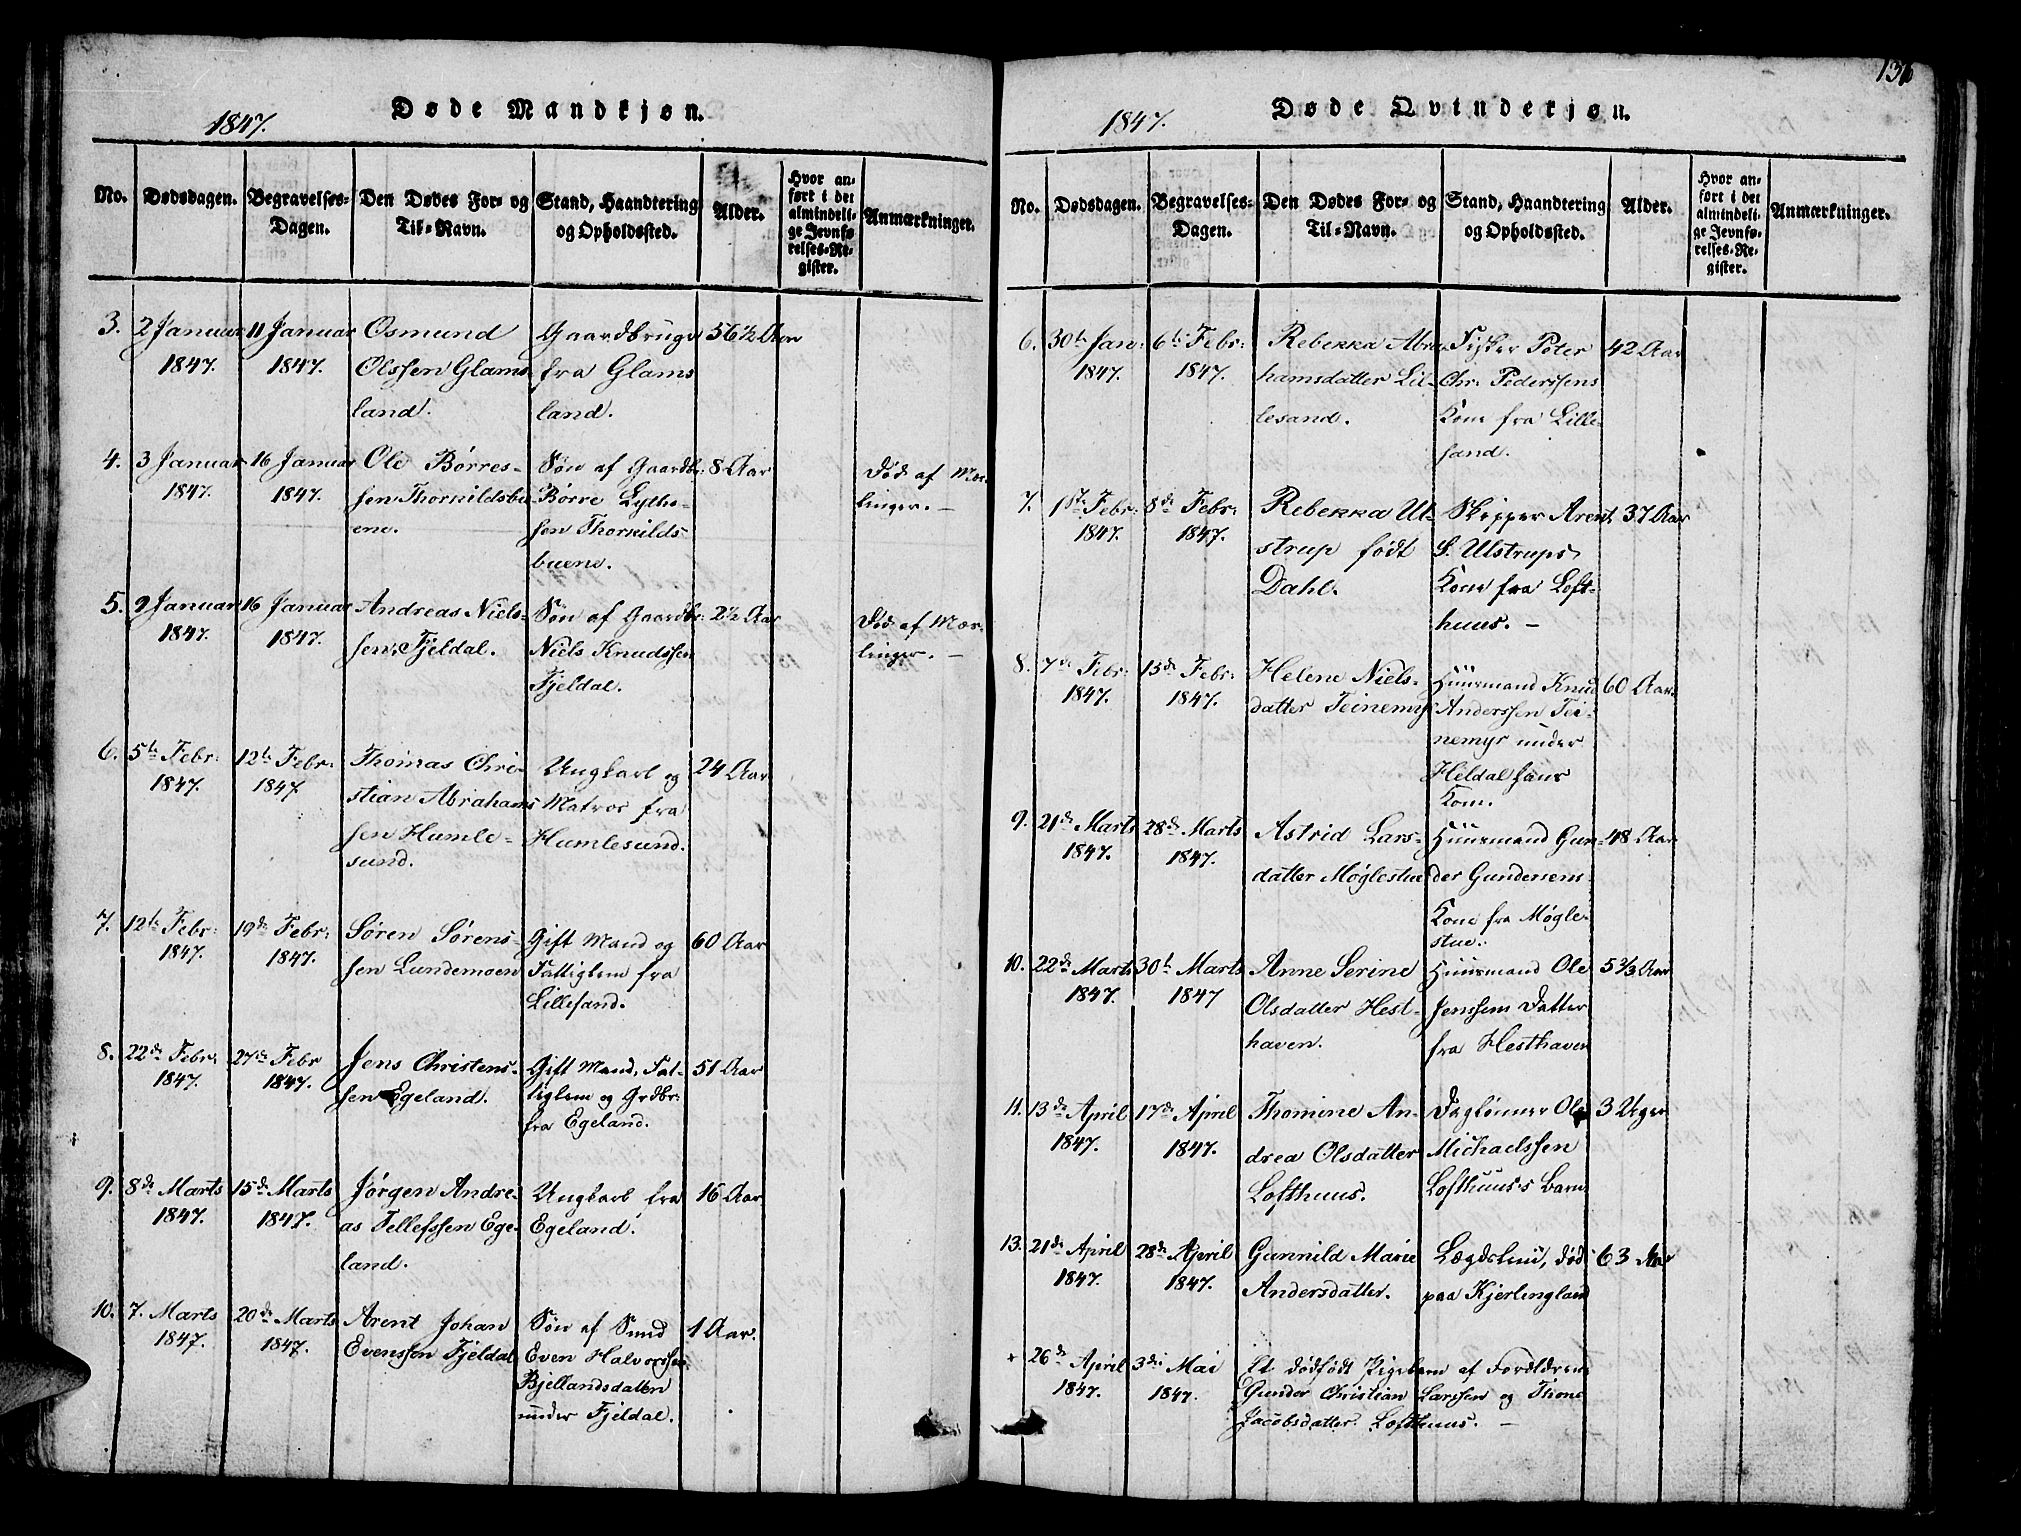 Døde Mandkjøn.
1847.
No.
Dødsdagen.
Begravelses-
Dagen.
Den Dødes For- og
Til-Navn.
Stand, Haandtering
og Opholdssted.
Alder.
Hvor an-
ført i det
almindeli-
ge Jevnfø-
relses-Re-
gister.
Anmærkninger.
3.
2 Januar
1847.
11 Januar
1847.
Osmund
Olssen Glams
land.
Gaardbruge
fra Glams
land.
56 1/2 Aar
4.
3 Januar
1847.
16 Januar
1847.
Ole Børres-
sen Thorkildsbu
ene.
Søn af Gaardbr.
Børre Lythe-
sen Thorkilds-
buene.
8 Aar
Død af Mæs-
linger. –
5.
9 Januar
1847.
16 Januar
1847.
Andreas Niels-
sen Fjeldal.
Søn af Gaardbr:
Niels Knudssen
Fjeldal.
2 1/2 Aar
Død af Mæs-
linger. –
6.
5te Febr:
1847.
12te Febr:
1847.
Thomas Chri-
stian Abrahams
sen Humle-
sund.
Ungkarl og
Matros fra
Humlesund.
24 Aar
7.
12te Febr:
1847.
19de Febr:
1847.
Søren Sørens-
sen Lundemoen
Gift Mand og
Fattiglem fra
Lillesand.
60 Aar
8.
22de Febr:
1847.
27de Febr
1847.
Jens Christens-
sen Egeland.
Gift Mand, Fat-
tiglem og Grdbr:
fra Egeland.
51 Aar
9.
8de Marts
1847.
15de Marts
1847.
Jørgen Andre-
as Tellefssen Ege-
land.
Ungkarl fra
Egeland.
16 Aar
10.
7. Marts
1847.
20de Marts
1847.
Arent Johan
Evenssen Fjeldal
Søn af Smed
Even Halvorssen
Bjellandsdalen
under Fjeldal.
1 Aar.
136
Døde Qvindekjøn.
1847.
No.
Dødsdagen.
Begravelses-
Dagen.
Den Dødes For- og
Til-Navn.
Stand, Haandtering
og Opholdssted.
Alder.
Hvor an-
ført i det
almindeli-
ge Jevnfø-
relses-Re-
gister.
Anmærkninger.
6.
30te Jan:
1847.
6te Febr:
1847.
Rebekka Abra-
hamsdatter Lil-
lesand.
Fisker Peter
Chr. Pederssens
Kone fra Lille-
sand.
42 Aar
7.
1ste Febr:
1847.
8de Febr:
1847.
Rebekka Ul-
strup født
Dahl.
Skipper Arent
S. Ulstrups
Kone fra Loft-
huus. –
37 Aar
8.
7de Febr:
1847.
13de Febr:
1847.
Helene Niels-
datter Teinemyr
Huusmand Knud
Anderssen Tei-
nemyr under
Heldal hans
Kone.
60 Aar.
9.
21de Marts
1847.
28de Marts
1847.
Astrid Lars-
datter Møglestue
Huusmand Gun-
der Gundersens
Kone fra Møgle-
stue.
48 Aar
10.
22de Marts
1847.
30te Marts
1847
Anne Serine
Olsdatter Hest-
haven.
Huusmand Ole
Jenssens Datter
fra Hesthaven
5 2/3 Aar
11.
13de April
1847.
17de April
1847.
Thomine An-
drea Olsdatter
Lofthuus.
Daglønner Ole
Michaelssen
Lofthuus's Barn
3 Uger
13.
21de April
1847.
28de April
1847.
Gunnild Marie
Andersdatter.
Lægdslem, død
paa Kjerlingland
63 Aar
+
26de April
1847.
3die Mai
1847.
Et dødfødt Pigebarn af Forældrene
Gunder Christian Larssen og Thone
Jacobsdatter Lofthuus. –